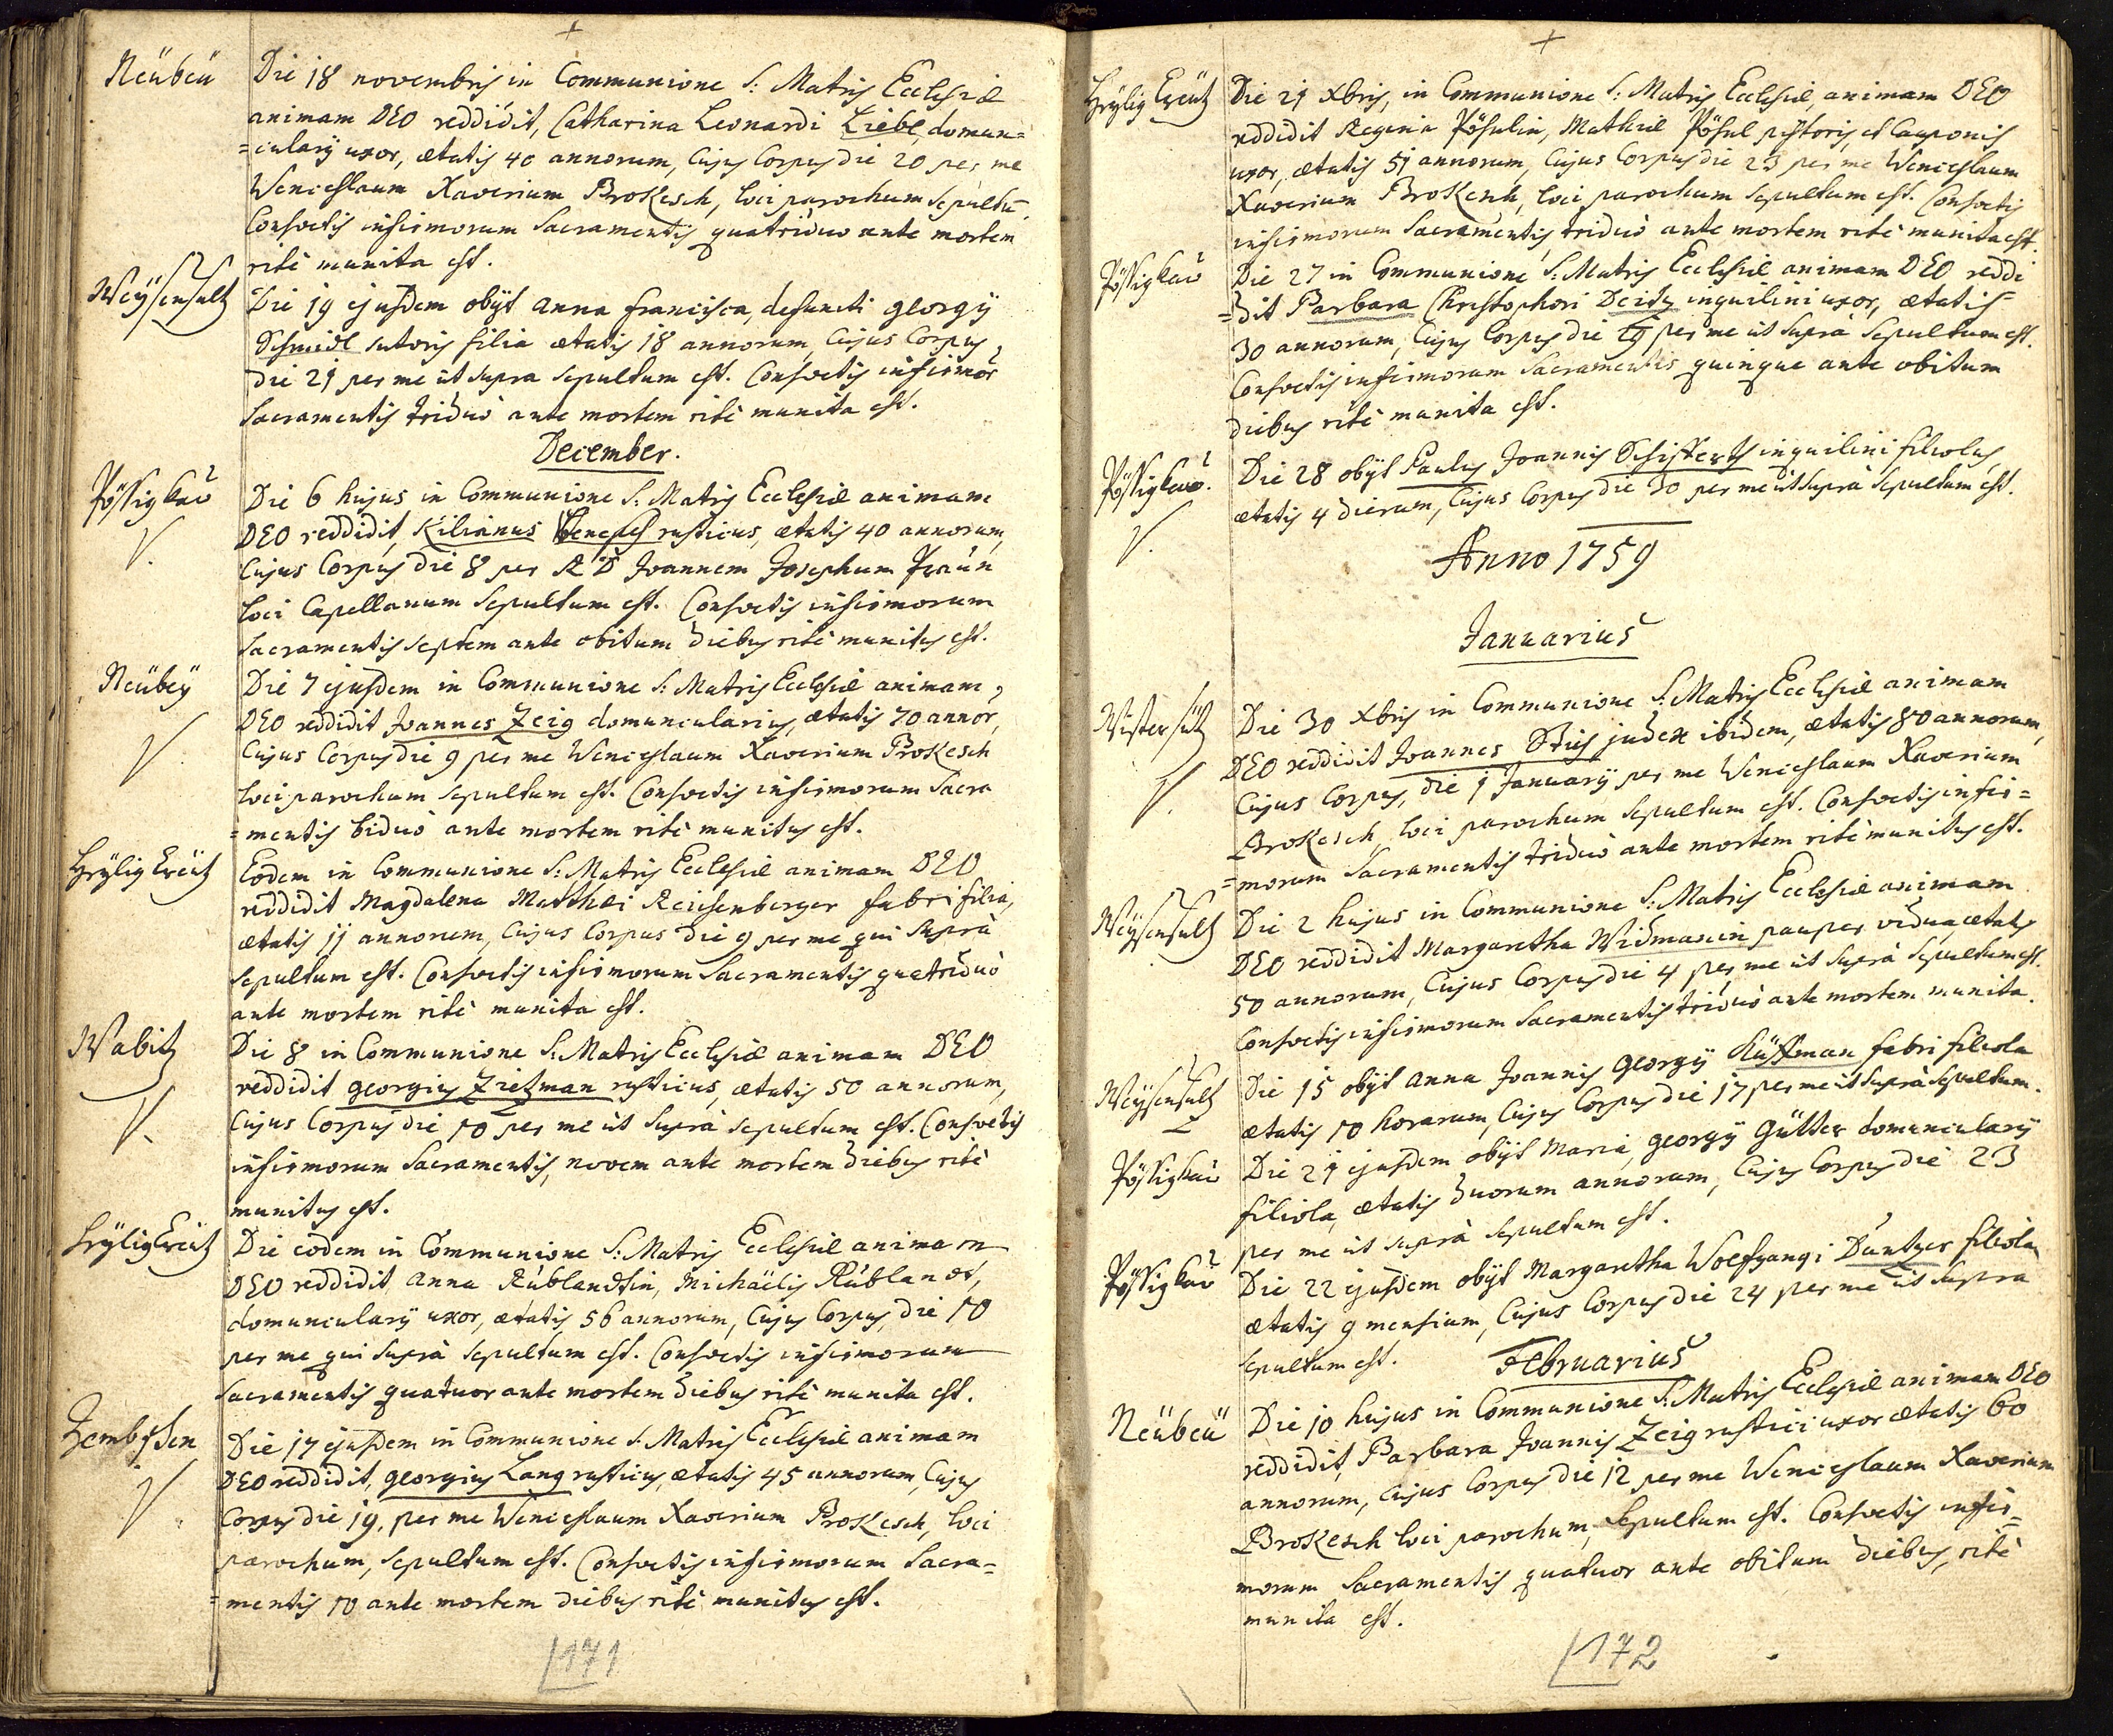 Neubeu
Die 18 novembris in Communione S: Matris Ecclesiæ
animam DEO reddidit, Catharina Leonardi Liebl, domun=
=cularÿ uxor, ætatis 40 annorum, Cujus Corpus die 20 per me
Wenceslaum Xaverium Brokesch, loci parochum sepultū
Consvetis infirmorum Sacramentis quatriduo ante mortem
ritè munita est.
Weÿsensultz
Die 19 ejusdem obÿt Anna Francisca, defuncti georgÿ
Schmidl sutoris filia ætatis 18 annorum, Cujus Corpus
die 21 per me ut supra sepultum est. Consvetis infirmor
Sacramentis triduò ante mortem ritè munita est.
December.
Pössigkau
Die 6 hujus in Communione S: Matris Ecclesiæ animam
DEO reddidit, Kilianus Wenesch rusticus, ætatis 40 annorum,
Cujus Corpus die 8 per R D Joannem Josephum Praun
loci Capellanum Sepultum est. Consvetis infirmorum
Sacramentis septem ante obitum diebus ritè munitus est.
Neubeÿ
Die 7 ejusdem in Communione S: Matris Ecclesiæ animam
DEO reddidit Joannes Zeig domuncularius, ætatis 70 annor,
Cujus Corpus die 9 per me Wenceslaum Xaverium Brokesch
loci parochum sepultum est. Consvetis infirmorum Sacra
=mentis biduò ante mortem ritè munitus est.
Heÿlig Creutz
Eodem in Communione S: Matris Ecclesiæ animam DEO
reddidit Magdalena Matthæi Reichenberger fabri filia,
ætatis 11 annorum, Cujus Corpus die 9 per me qui Suprà
sepultum est. Consvetis infirmorum Sacramentis quatriduò
ante mortem ritè munita est.
Wabitz
Die 8 in Communione S: Matris Ecclesiæ animam DEO
reddidit georgius Zietzman rusticus, ætatis 50 annorum,
Cujus Corpus die 10 per me ut Suprà sepultum est. Consvetis
infirmorum Sacramentis, novem ante mortem diebus ritè
munitus est.
Heÿlig Creutz
Die eodem in Communione S: Matris Ecclesiæ animam
DEO reddidit anna Rublandtin, Michaëlis Rublandt,
domuncularÿ uxor, ætatis 56 annorum, Cujus Corpus, die 10
per me qui Suprà sepultum est. Consvetis infirmorum
Sacramentis quatuor ante mortem diebus ritè munita est.
Die 17 ejusdem in Communione S. Matris Ecclesiæ animam
DEO reddidit, georgius Lang rusticus, ætatis 45 annorum, Cujus
Corpus die 19, per me Wenceslaum Xaverium Brokesch, loci
parochum, sepultum est. Consvetis infirmorum Sacra=
=mentis 10 ante mortem diebus ritè munitus est.
171
Heÿlig Creutz
Die 21 Xbris, in Communione S: Matris Ecclesiæ, animam DEO
reddidit Regina Pösulin, Mathiæ Pösul pistoris, et Cauponis
uxor, ætatis 51 annorum, Cujus Corpus die 23 per me Wenceslaum
Xaverium Brokesch, loci parochum sepultum est. Consvetis
infirmorum Sacramentis, triduò ante mortem ritè munita est.
Pössigkau
Die 27 in Communione S: Matris Ecclesiæ animam DEO redde
=dit Barbara Christophori Deitz inquilini uxor, ætatis
30 annorum, Cujus Corpus die 29 per me ut Suprà Sepultum est.
Consvetis infirmorum Sacramentis quinque ante obitum
diebus ritè munita est.
Pössigkau.
Die 28 obÿt Paulus Joannis inquilini filiolus,
ætatis 4 dierum, Cujus Corpus die 30 per me ut suprà Sepultum est.
Anno 1759
Januarius
Wistersitz
Die 30 Xbris in Communione S: Matris Ecclesiæ animam
DEO reddidit Joannes judex ibidem, ætatis 80 annorum,
Cujus Corpus, die 1 Januarÿ per me Wenceslaum Xaverium
Brokesch loci parochum Sepultum est. Consvetis infir=
=morum Sacramentis triduò ante mortem ritè munitus est.
Weÿsensultz
Die 2 hujus in Communione S: Matris Ecclesiæ animam
DEO reddidit Margaretha Widmanin pauper vidua ætatis
50 annorum, Cujus Corpus die 4 per me ut Suprà sepultum est.
Consvetis infirmorum Sacramentis triduò ante mortem munita.
Weÿsensultz
Die 15 obÿt anna Joannis georgÿ Küffman fabri filiola
ætatis 10 horarum, Cujus Corpus die 17 per me ut suprà sepultum.
Pössigkau
Die 21 ejusdem obÿt Maria, georgÿ Gütter domuncularÿ
filiola, ætatis duorum annorum, Cujus Corpus die 23
per me ut suprà sepultum est.
Pössigkau
Die 22 ejusdem obÿt Margaretha Wolfgangi Duntzer filiola
ætatis 9 mensium, Cujus Corpus die 24 per me ut supra
sepultum est.
Februarius
Neubeu
Die 10 hujus in Communione S: Matris Ecclesiæ animam DEO
reddidit, Barbara Joannis Zeig rustici uxor ætatis 60
annorum, Cujus Corpus die 12 per me Wenceslaum Xaverium
Brokesch loci parochum, Sepultum est. Consvetis infir=
morum Sacramentis quatuor ante obitum diebus, ritè
munita est.
172